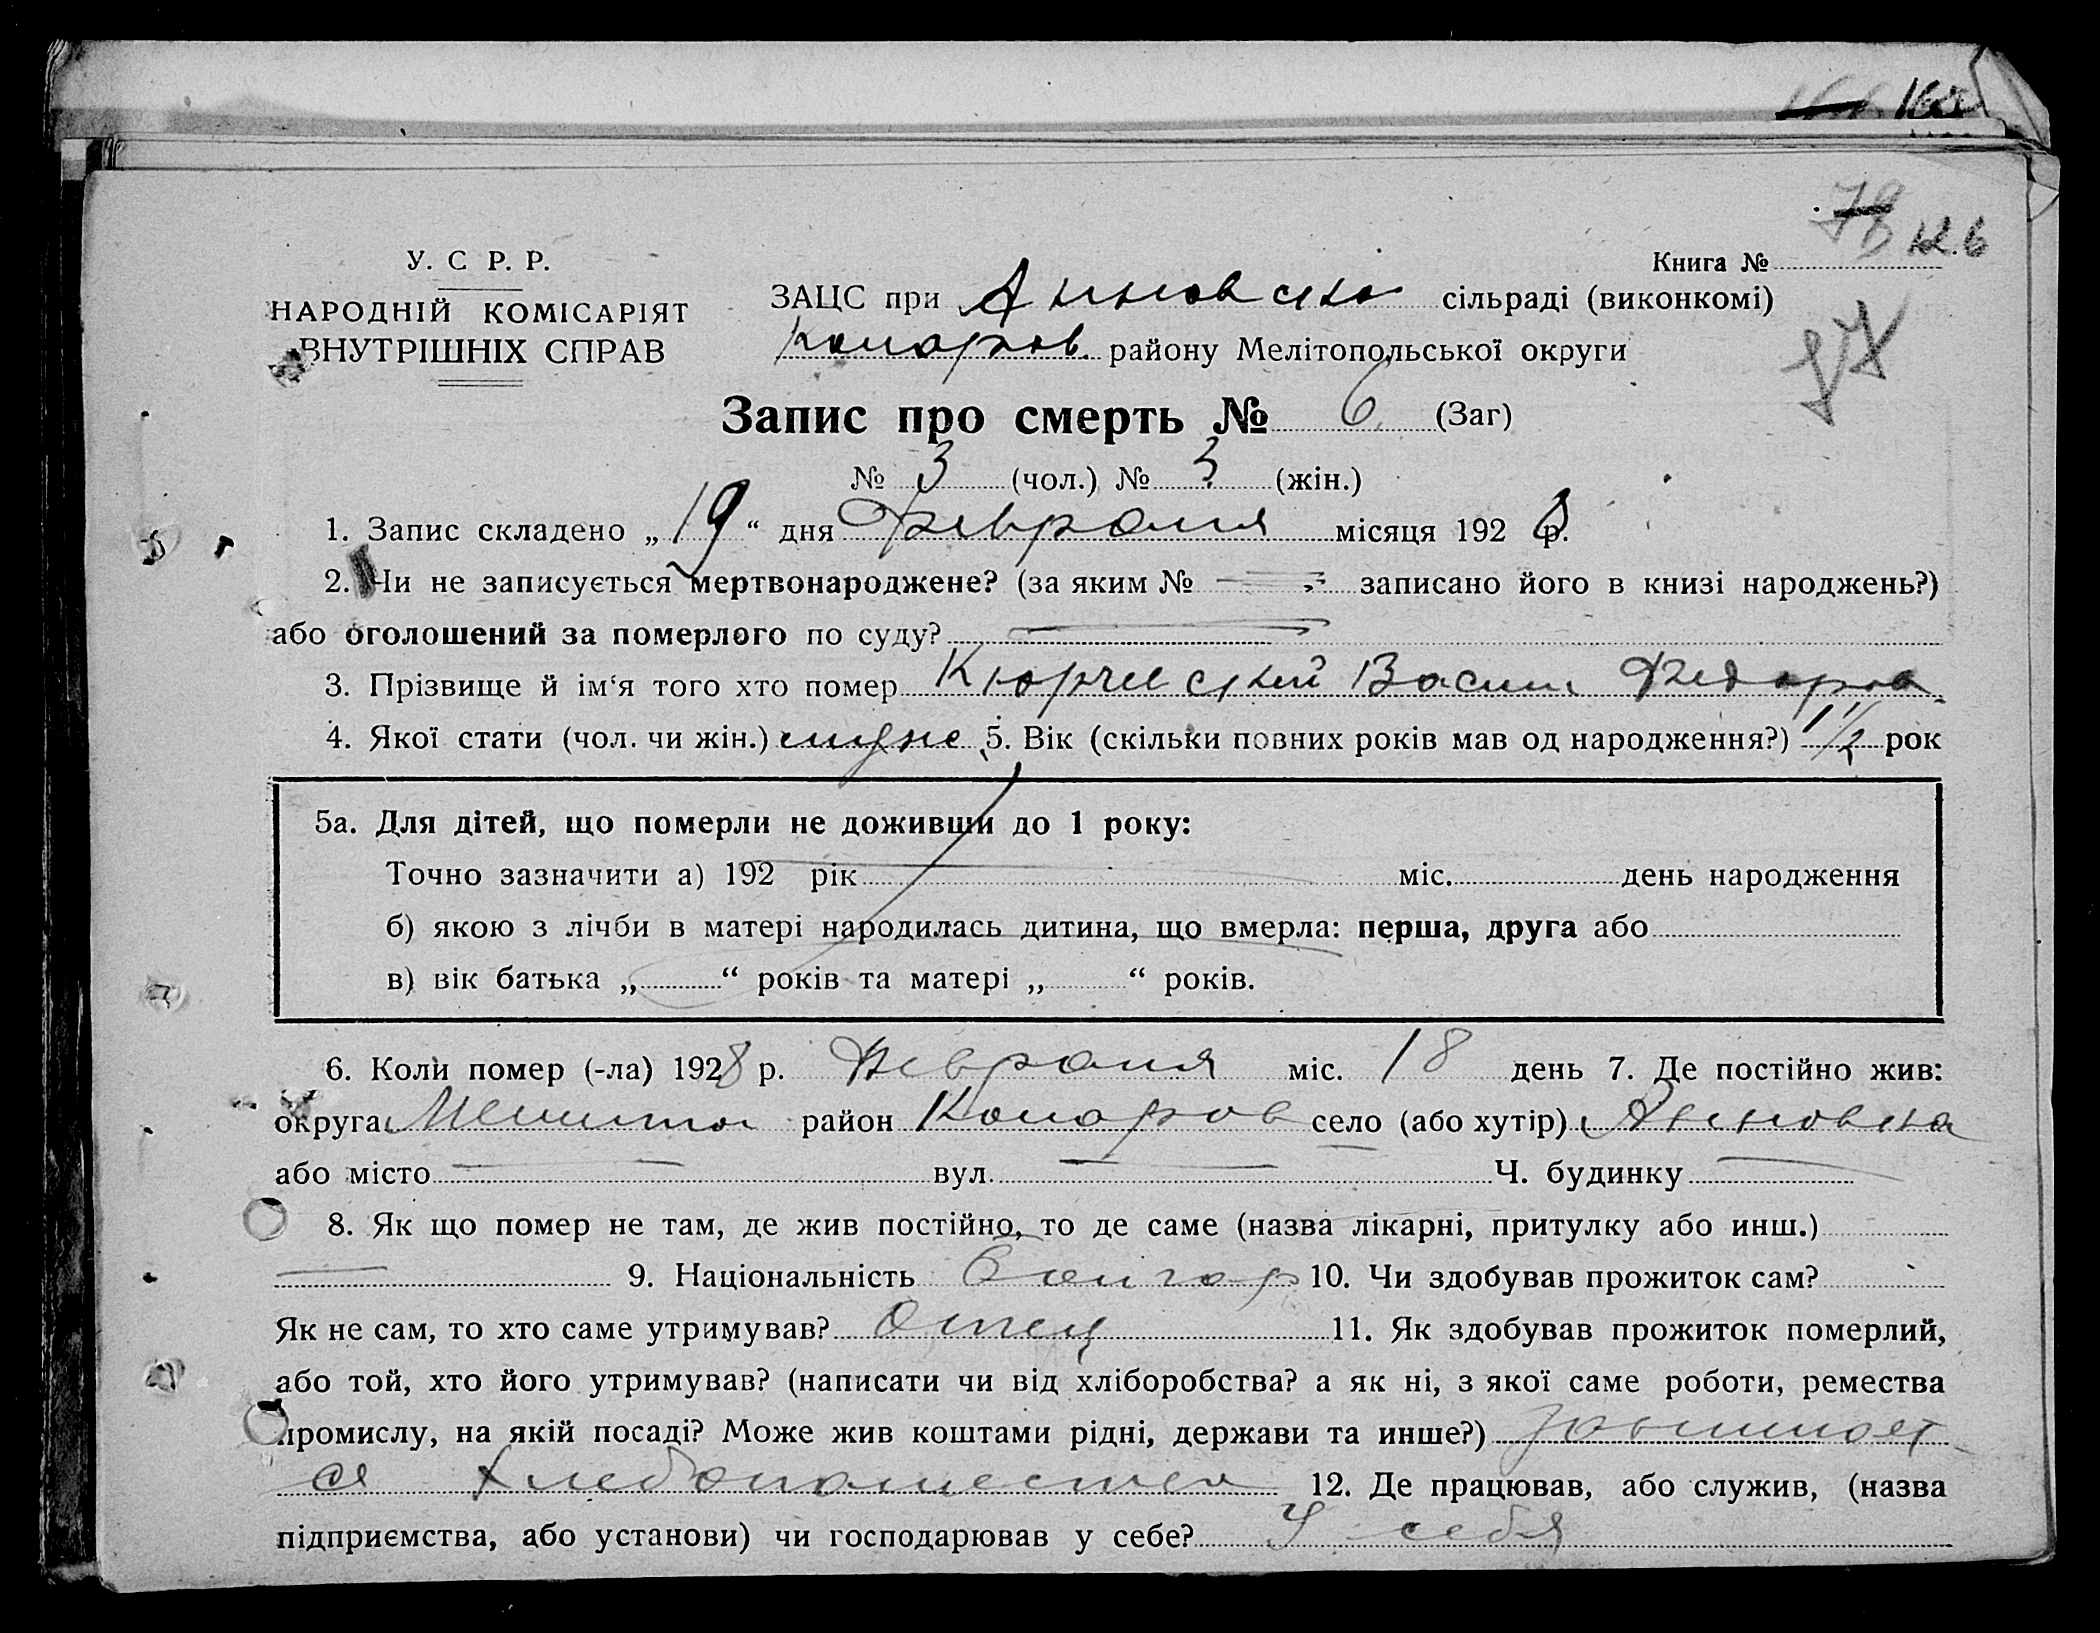 168
78 126
У. С Р. Р.
Книга №
НАРОДНІЙ КОМІСАРІЯТ
ВНУТРІШНІХ СПРАВ
ЗАЦС при Анновско сільраді (виконкомі)
Комаров. району Мелітопольської округи
Запис про смерть № 6 (Заг)
№ 3 (чол.) № 3 (жін.)
1. Запис складено „ 19 “ дня Февраля місяця 192 8 р.
2. Чи не записується мертвонароджене? (за яким № записано його в книзі народжень?)
або оголошений за померлого по суду?
3. Прізвище й ім‘я того хто помер Кюрчевский Васили Федоров
4. Якої стати (чол. чи жін.) мужс. 5. Вік (скільки повних років мав од народження?) 1 1/2 рок
5а. Для дітей, що померли не доживши до 1 року:
Точно зазначити а) 192 рік міс. день народження
б) якою з лічби в матері народилась дитина, що вмерла: перша, друга або
в) вік батька „ “ років та матері „ “ років.
6. Коли помер (-ла) 1928 р. Февраля міс. 18 день 7. Де постійно жив:
округа Мелитоп район Комаров село (або хутір) Анновка
або місто вул. Ч. будинку
8. Як що помер не там, де жив постійно, то де саме (назва лікарні, притулку або инш.)
9. Національність Болгар 10. Чи здобував прожиток сам?
Як не сам, то хто саме утримував? Отец 11. Як здобував прожиток померлий,
або той, хто його утримував? (написати чи від хліборобства? а як ні, з якої саме роботи, ремества
промислу, на якій посаді? Може жив коштами рідні, держави та инше?) Занимает
ся хлебопашества 12. Де працював, або служив, (назва
підприємства, або установи) чи господарював у себе? У себя